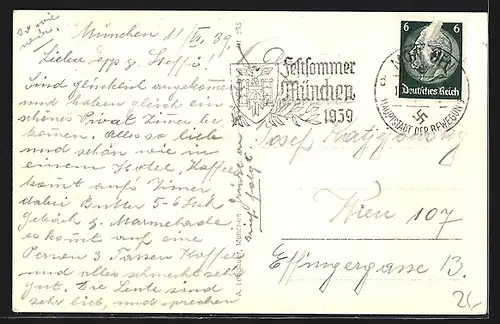 München 11/VI. 39.
Lieber Sepp g. Steffi!
Sind glücklich angekommen
und haben gleich ein
schönes Privat Zimer be
kommen. Alles so liebe
und schön wie in
einem Hotel, Kaffee
komt aufs Zimer
dabei Butter 5-6 Stch
Gebäck g. Marmelade
es komt auf eine
Person 3 Tassen Kaffee
und alles schmeckt sehr
gut. Die Leute sind
sehr lieb, und sprechen
Festsommer
München
1939
6 6
Deutsches Reich
HAUPTSTADT DER BEWEGUNG
Josef
Wien 107
Effingergasse 13.